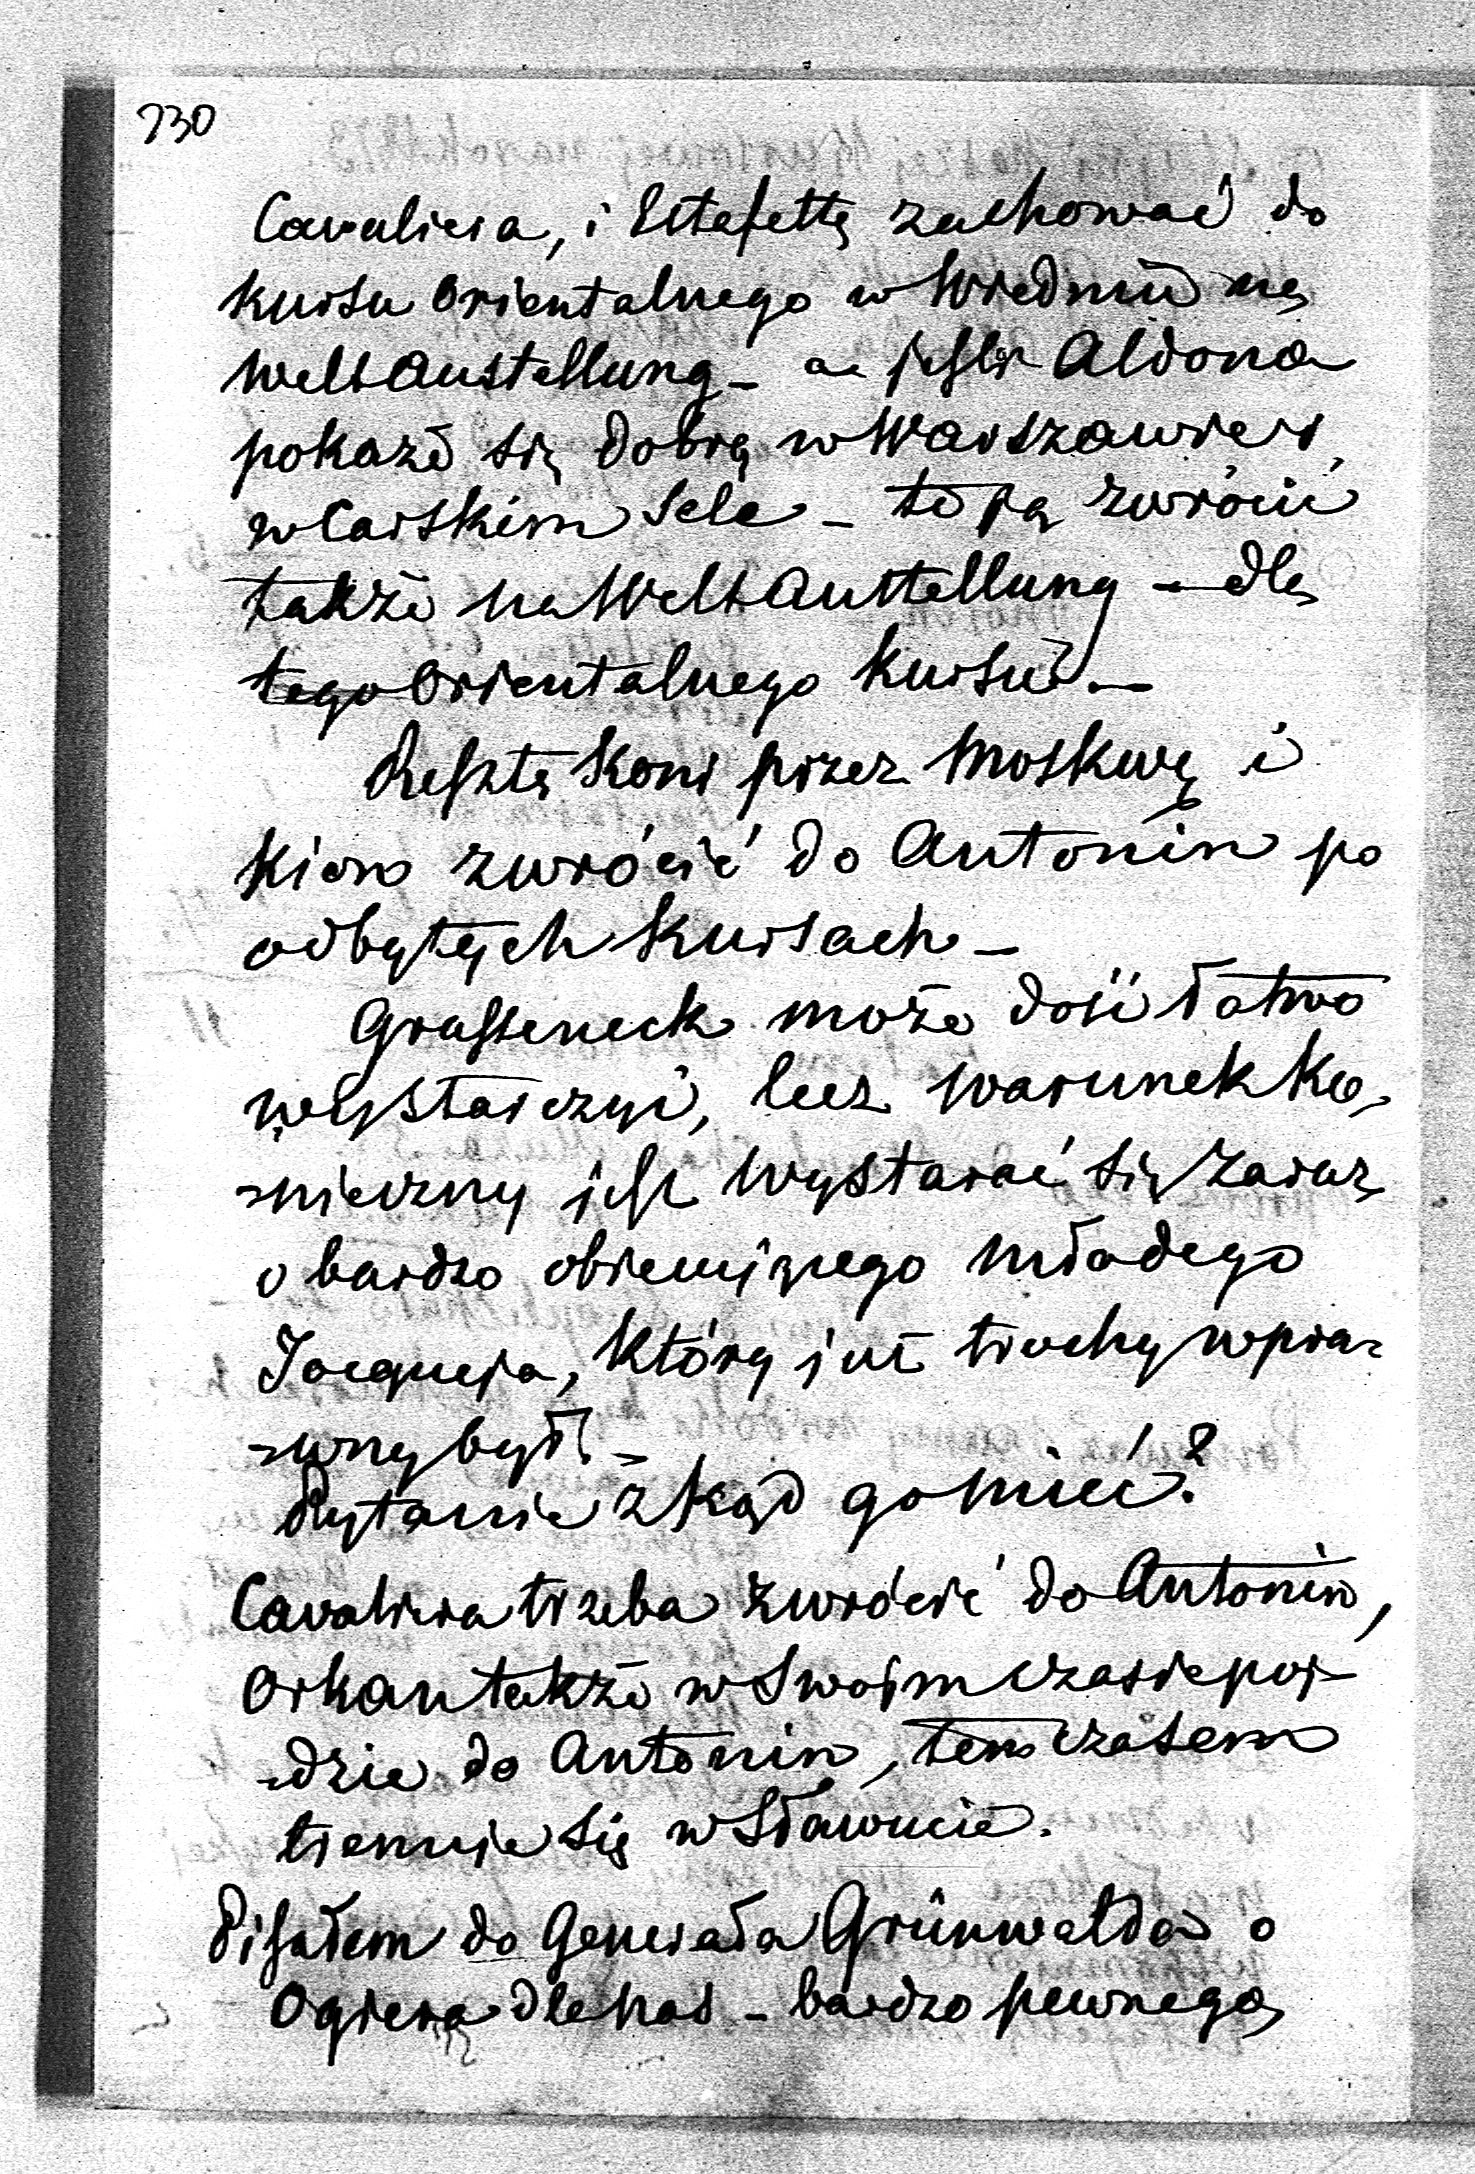 230
Cavaliera, i Estafettę zachować do
kursu Orientalnego w Wiedniu na
Weltaustellung – a jeśli Aldona
pokaże się dobrą w Warszawie i
w Carskiem Sele – to ją zwrócić
także na Weltaustellung – dla
tego Orientalnego kursu. –
Resztę koni przez Moskwę i
Kiew zwrócić do Antonin po
odbytych kursach –
Grasseneck może dość łatwo
wystarczyć, lecz warunek ko-
-nieczny jest wystarać się zaraz
o bardzo obiecującego młodego
Jocqueja, który już trochę wpra-
-wny był. –
Pytanie zkąd go mieć?
Cavaliera trzeba zwrócić do Antonin,
Orkan także w swoim czasie poj-
-dzie do Antonin, tem czasem
trenuje się w Sławucie.
Pisałem do Generała Grünwalda o
Ogiera dla nas – bardzo pewnego